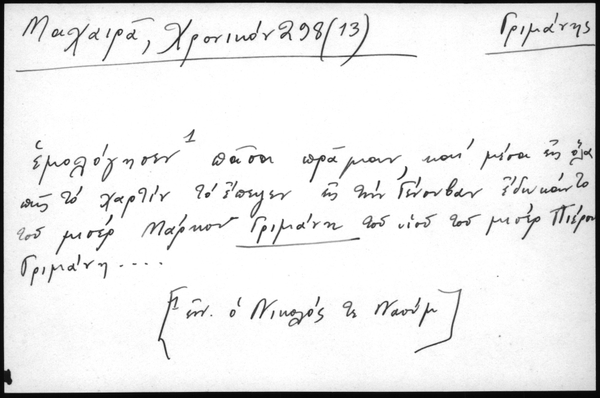 Μαχαιρᾶ, Χρονικόν 298(13) Γριμάνης
ἐμολόγησεν¹ πᾶσα πρᾶμαν, καὶ μέσα εἰς ὅλα
πῶς τὸ χαρτὶν τὸ ἔπεψεν εἰς τὴν Γένουβαν ἐδῶκάν το
τοῦ μισὲρ Μάρκου Γριμάνη τοῦ υἱοῦ τοῦ μισὲρ Πιέρου
Γριμάνη....
[¹ ἐν. ὁ Νικολὸς τε Ναούμ]